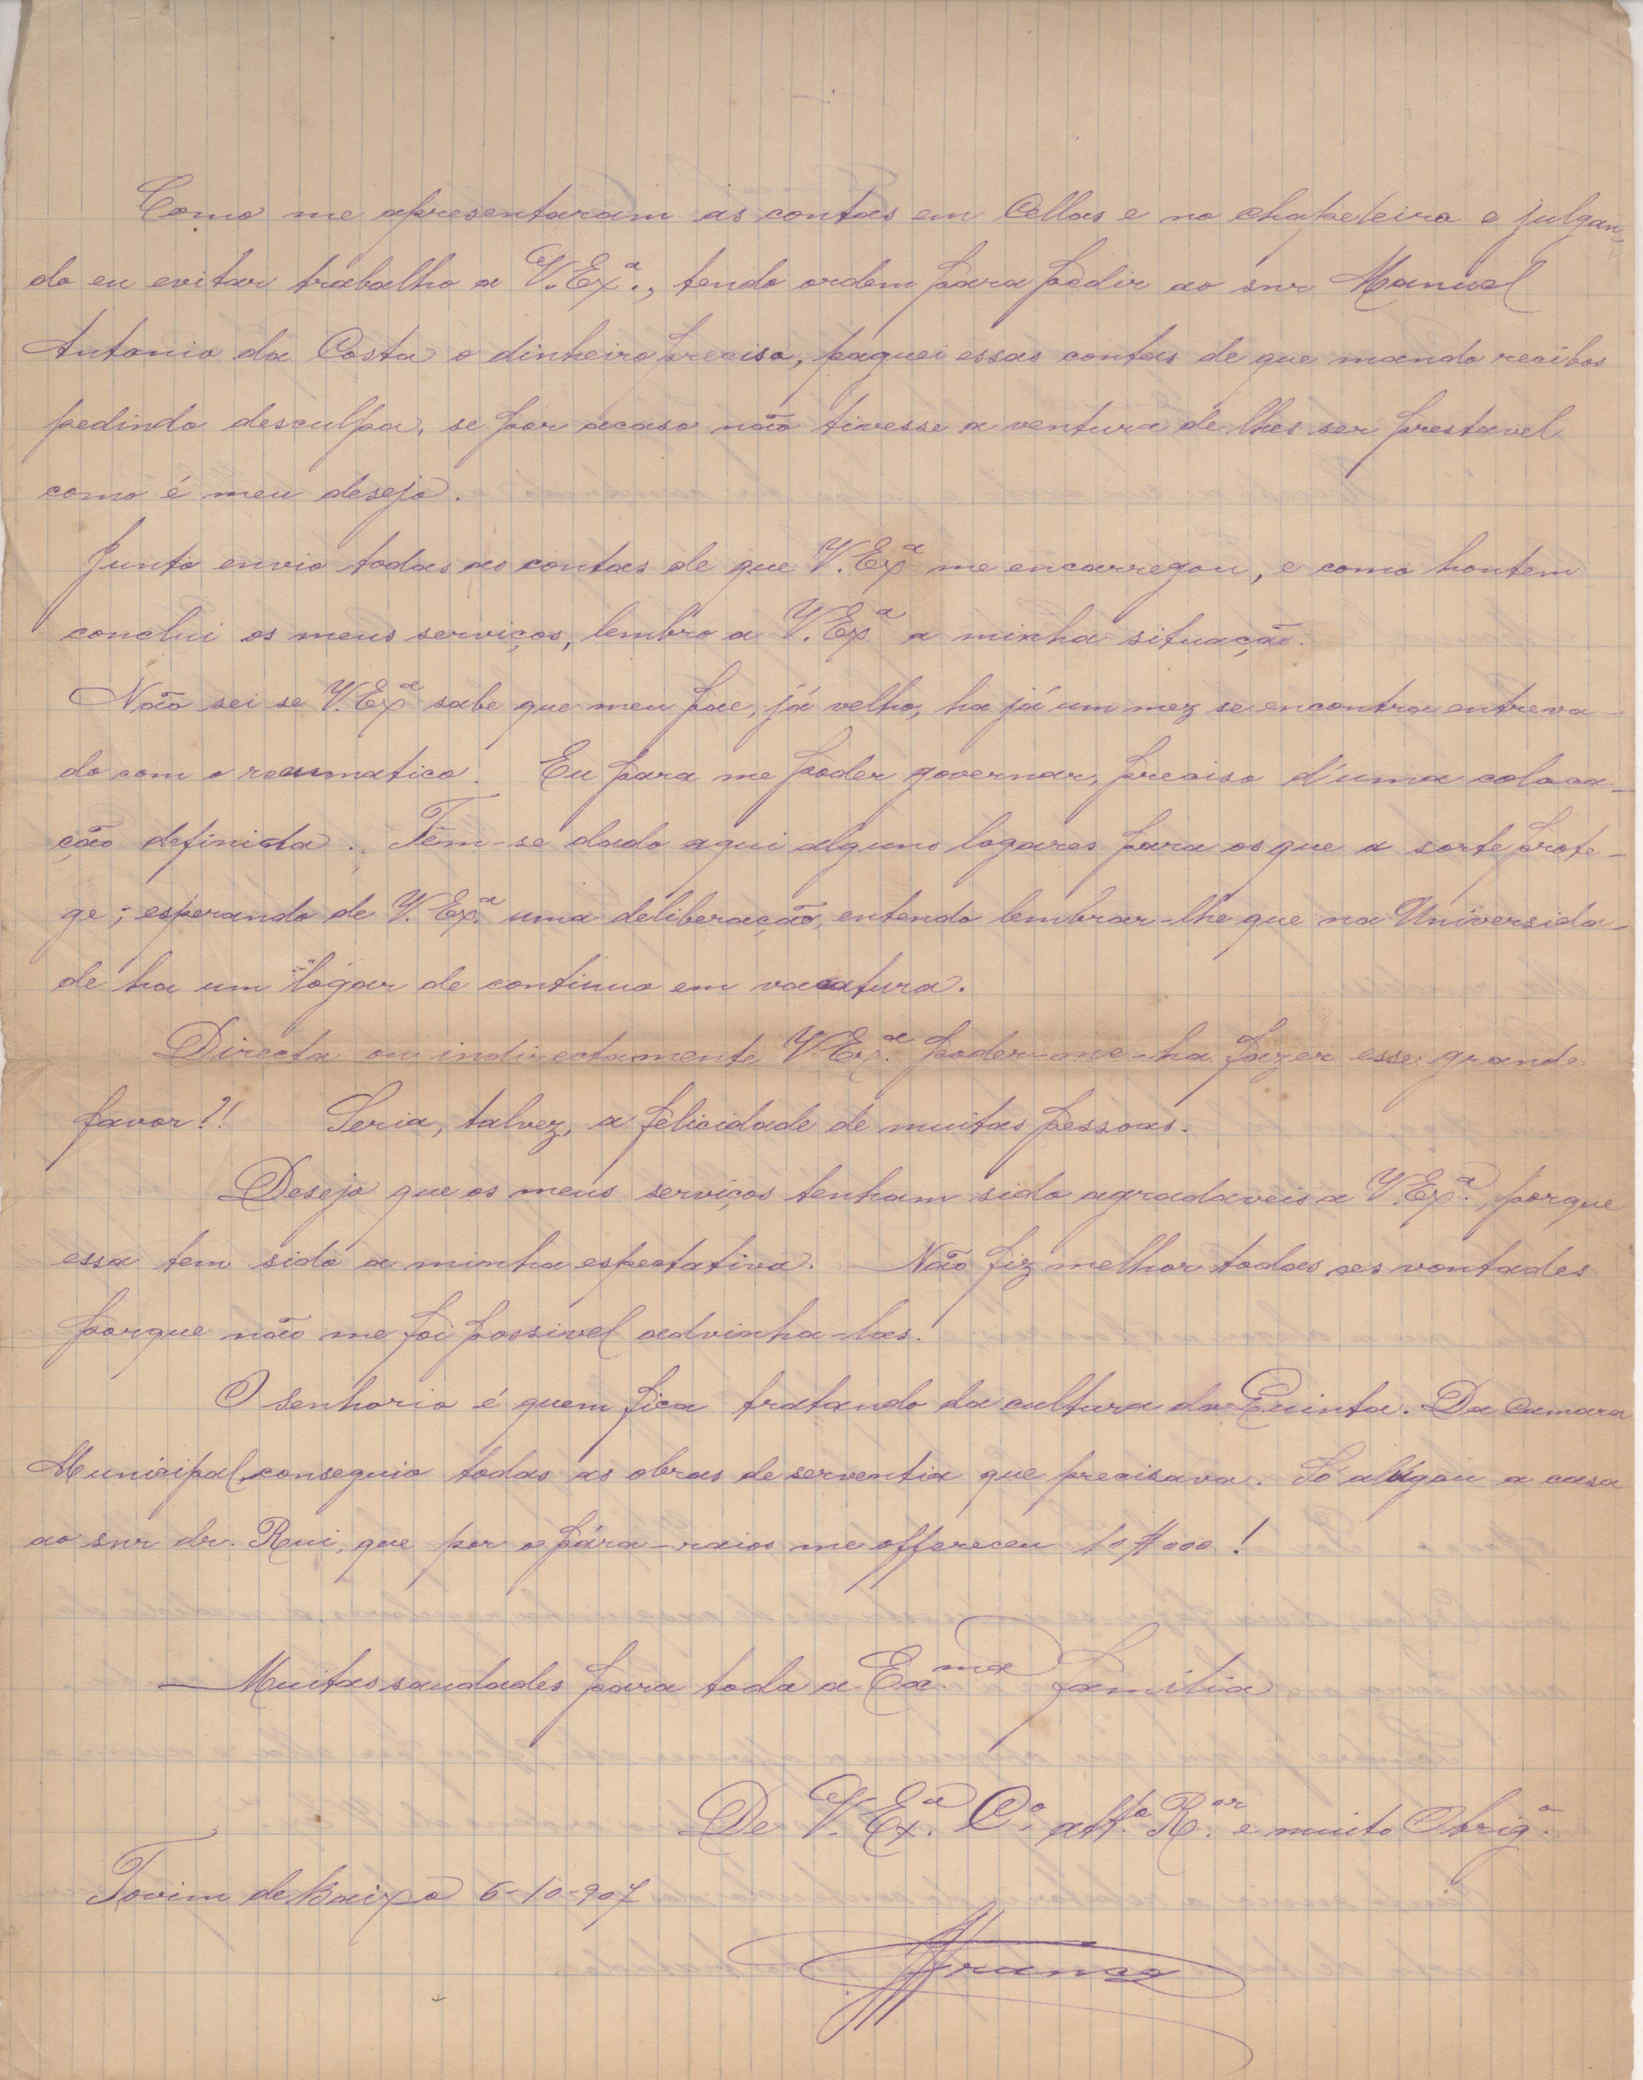 Como me apresentaram as contas em Cellas e no chapeleiro e julgan-
do eu evitar trabalho a V. Exª., tendo ordem para pedir ao snr Manuel
Antonio da Costa o dinheiro preciso, paguei essas contas de que mando recibos
pedindo desculpa, se por acaso não tivesse a ventura de lhes ser prestavel
como é meu desejo.
Junto envio todas as contas de que V. Exª me encarregou, e como hontem
conclui os meus serviços, lembro a V. Exª a minha situação.
Não sei se V. Exª sabe que meu pae, já velho, ha já um mez se encontra entreva-
do com o reumatico. Eu para me poder governar, preciso d'uma coloca-
ção definida. Têm-se dado aqui alguns logares para os que a sorte prote-
ge; esperando de V. Exª uma deliberação, entendo lembrar-lhe que na Universida-
de ha um logar de continuo em vacatura.
Directa ou indirectamente V. Exª. poder-me-ha fazer esse grande
favor?! Seria, talvez, a felicidade de muitas pessoas.
Desejo que os meus serviços tenham sido agradaveis a V. Exª., porque
essa tem sido a minha espectativa. Não fiz melhor todas as vontades
porque não me foi possivel advinha-las.
O senhorio é quem fica tratando da cultura da Quinta. Da Camara
Municipal conseguio todas as obras de serventia que precisava. Só alugou a casa
ao snr dr. Rui, que por o pára-raios me offereceu 10$000!
Muitas saudades para toda a Exma familia
De V. Exª. Cº. attº. Rºr. e muito Obrigº.
Tovim de Baixo 6-10-907